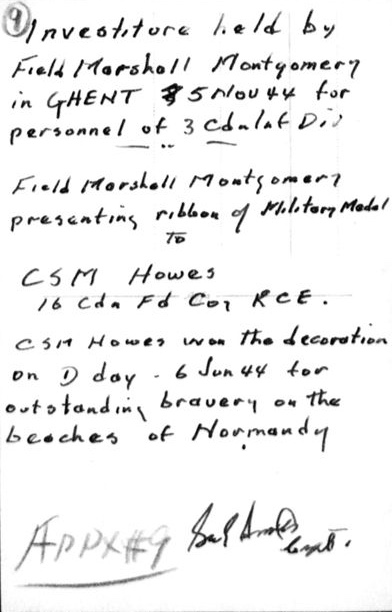 9
Investiture held by
Field Marshall Montgomery
in GHENT 5 Nov 44 for
personnel of 3 Cdn Inf Div
Field Marshall Montgomery
presenting ribbon of Military Medal
To
CSM Howes
16 Cdn Fd Coy RCE.
CSM Howes won the decoration
on D day - 6 Jun 44 for
outstanding bravery on the
beaches of Normandy
APPX #9
Capt.